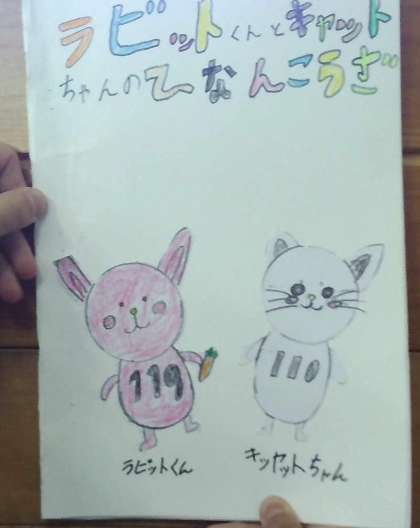 ラビットくんとキャット
ちゃんのひなんこうざ
119
110
ラビットくん
キッヤットちゃん